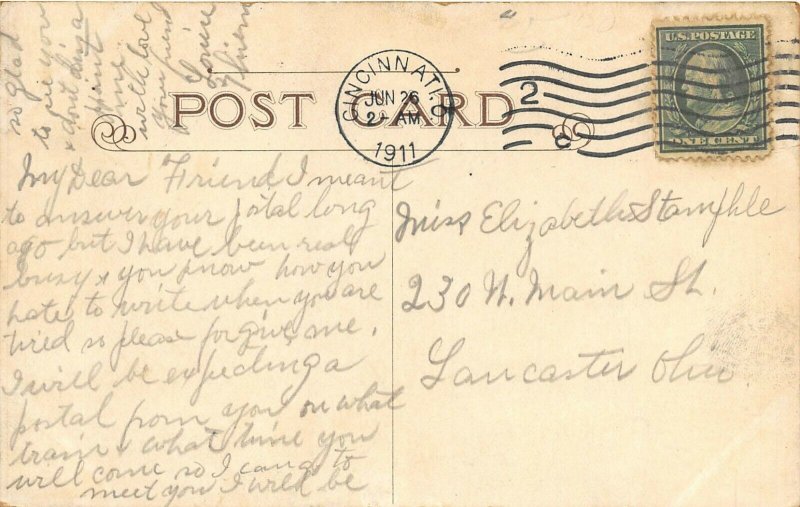 POST CARD
CINCINNATI, O.
JUN 26
2- AM
1911
2
U.S. POSTAGE
ONE CENT
My Dear Friend I meant
to answer your postal long
ago but I have been real
busy & you know how you
hate to write when you are
tired so please forgive me.
I will be expecting a
postal from you on what
train & what time you
will come so I can go to
meet you I will be
so glad
to see you
& don't
time
with love
your friend
Miss Elizabeth Stamphle
230 N. Main St.
Lancaster Ohio